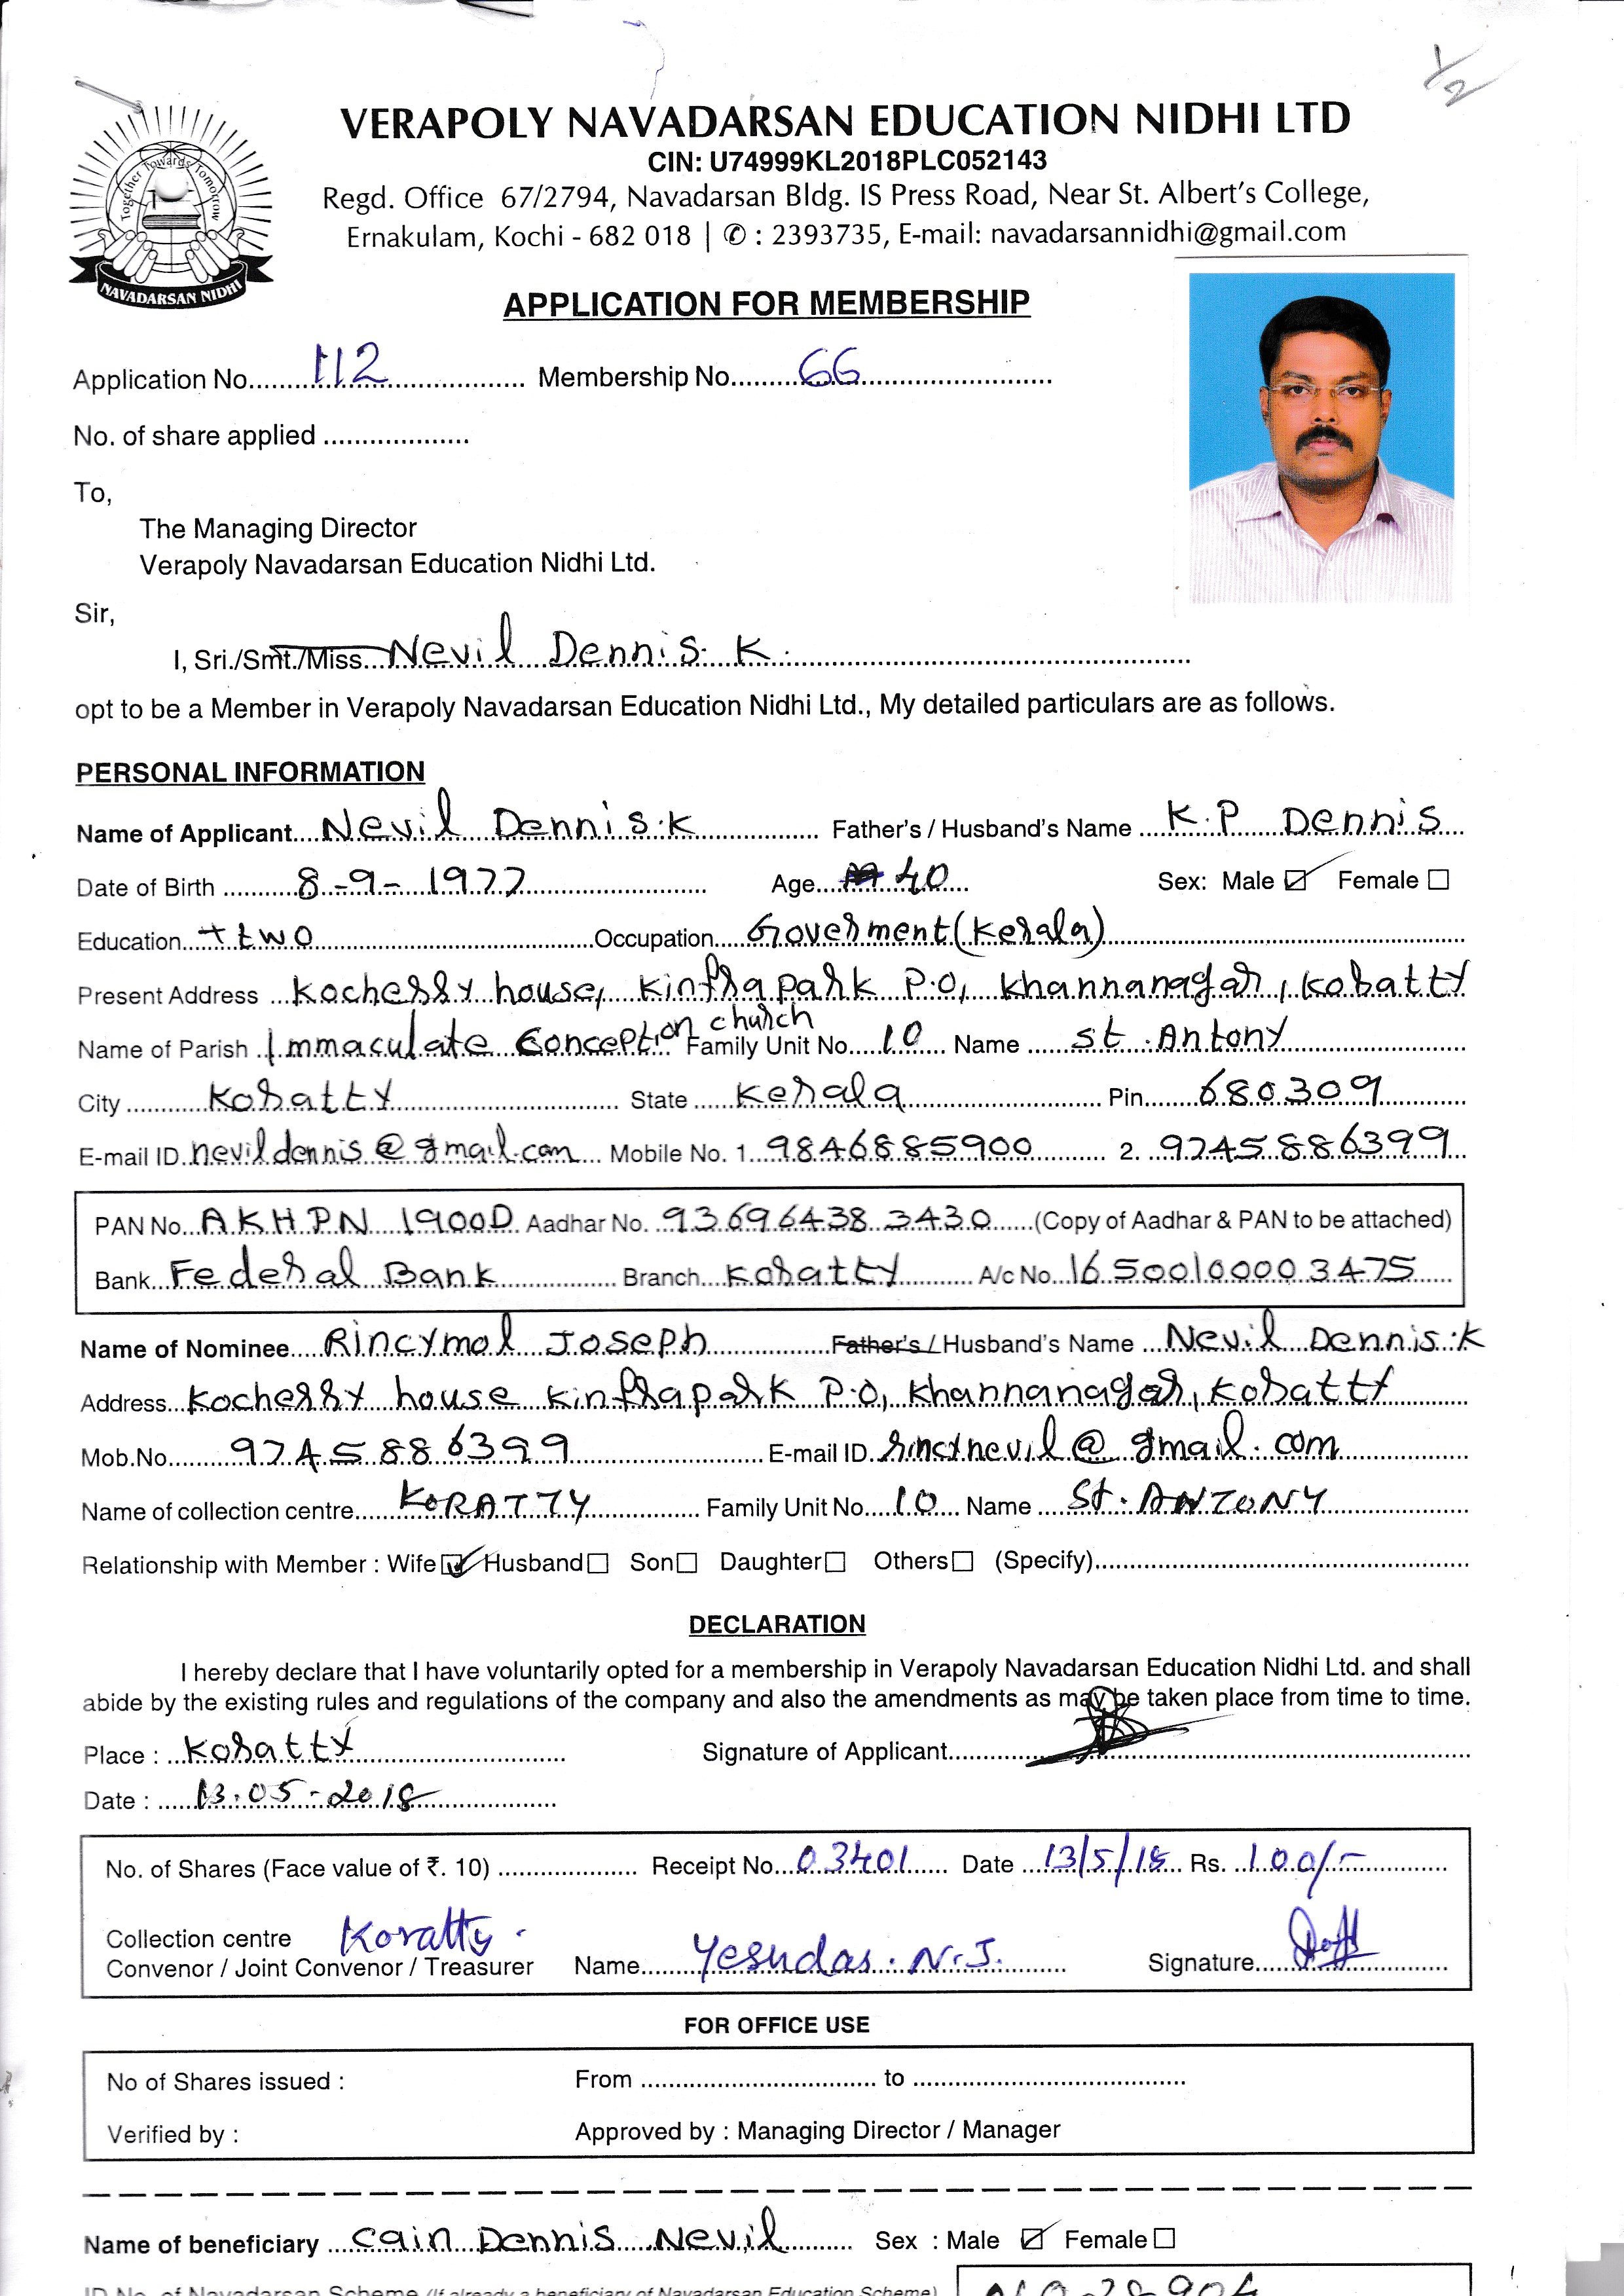 1/2
VERAPOLY NAVADARSAN EDUCATION NIDHI LTD
CIN: U74999KL2018PLC052143
Regd. Office 67/2794, Navadarsan Bldg. IS Press Road, Near St. Albert's College,
Ernakulam, Kochi - 682 018 | ✆ : 2393735, E-mail: navadarsannidhi@gmail.com
Together Towards Tomorrow
NAVADARSAN NIDHI
APPLICATION FOR MEMBERSHIP
Application No. 112 Membership No. 66
No. of share applied
To,
The Managing Director
Verapoly Navadarsan Education Nidhi Ltd.
Sir,
I, Sri./Smt./Miss. Nevil Dennis. K.
opt to be a Member in Verapoly Navadarsan Education Nidhi Ltd., My detailed particulars are as follows.
PERSONAL INFORMATION
Name of Applicant Nevil Dennis.K Father's / Husband's Name K.P Dennis
Date of Birth 8-9-1977 Age 40 Sex: Male ☑ Female ☐
Education + two Occupation Goverment (Kerala)
Present Address Kocherry house, Kinfrapark P.O, Khannanagar, Koratty
Name of Parish Immaculate Conception church Family Unit No. 10 Name St. Antony
City Koratty State Kerala Pin 680309
E-mail ID nevildennis@gmail.com Mobile No. 1. 9846885900 2. 9745886399
PAN No. AKHPN 1900D Aadhar No. 93696438 3430 (Copy of Aadhar & PAN to be attached)
Bank Federal Bank Branch Koratty A/c No. 16500100003475
Name of Nominee Rincymol Joseph Father's / Husband's Name Nevil Dennis.K
Address Kocherry house Kinfrapark P.O, Khannanagar, Koratty
Mob.No. 9745886399 E-mail ID rincynevil@gmail.com
Name of collection centre KORATTY Family Unit No. 10 Name St. ANTONY
Relationship with Member : Wife ☑ Husband ☐ Son ☐ Daughter ☐ Others ☐ (Specify)
DECLARATION
I hereby declare that I have voluntarily opted for a membership in Verapoly Navadarsan Education Nidhi Ltd. and shall
abide by the existing rules and regulations of the company and also the amendments as may be taken place from time to time.
Place : Koratty Signature of Applicant
Date : 13.05-2018
No. of Shares (Face value of ₹. 10) Receipt No. 03401 Date 13/5/18 Rs. 100/-
Collection centre Koratty.
Convenor / Joint Convenor / Treasurer Name Yesudas. N.J. Signature
FOR OFFICE USE
No of Shares issued : From to
Verified by : Approved by : Managing Director / Manager
Name of beneficiary Cain Dennis Nevil Sex : Male ☑ Female ☐
ID No. of Navadarsan Scheme (If already a beneficiary of Navadarsan Education Scheme)